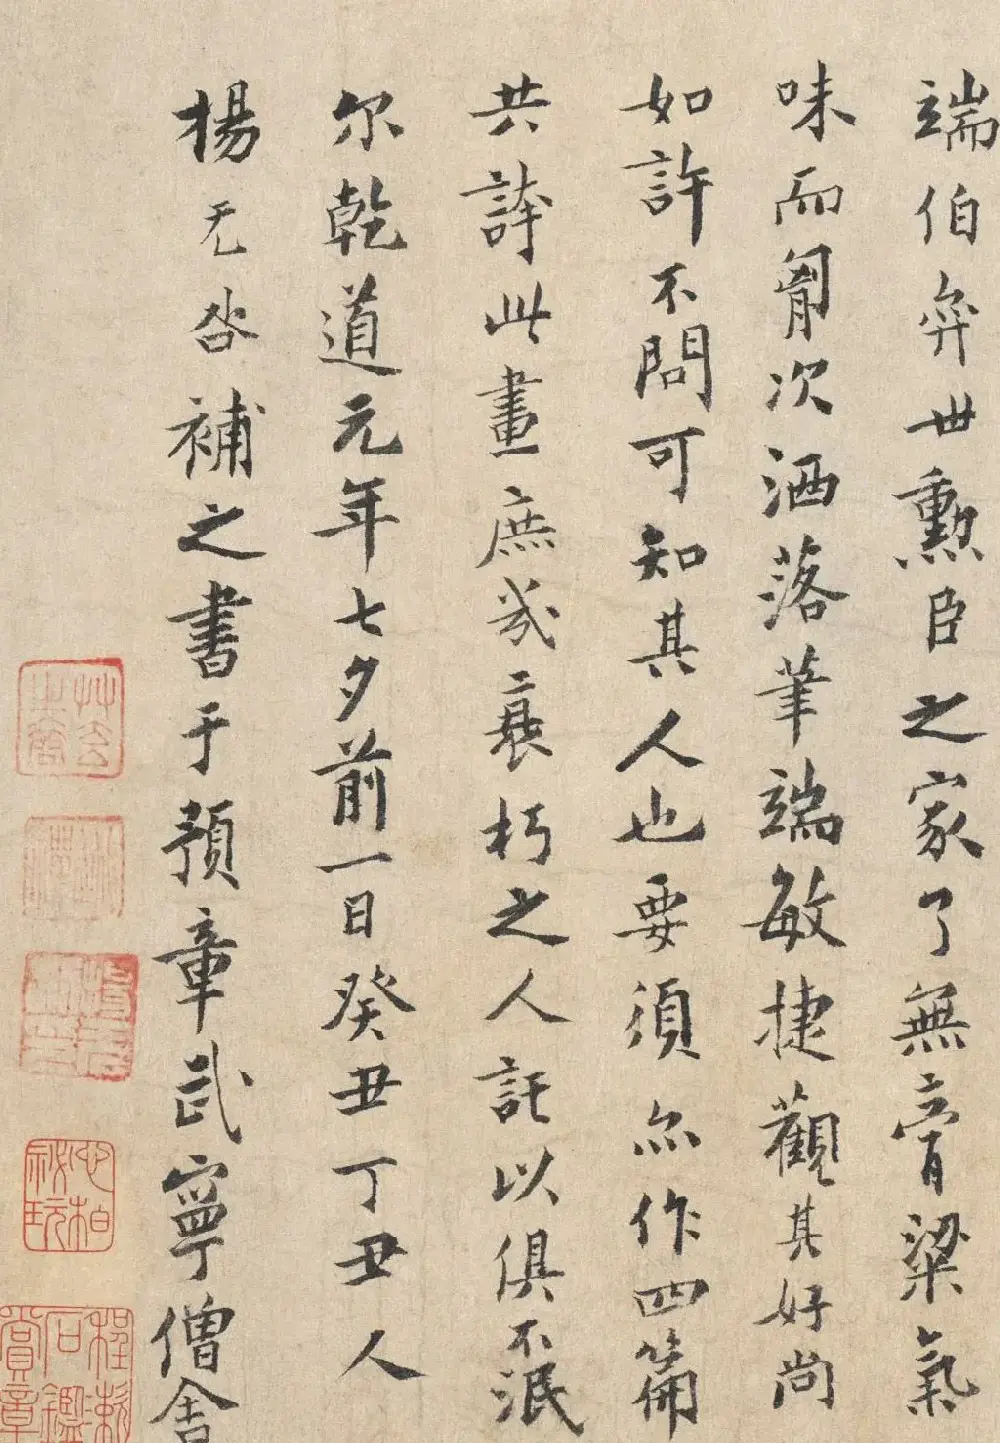 端伯弈世勳臣之家了無膏粱氣
味而胷次洒落筆端敏捷觀其好尚
如許不問可知其人也要須亦作四篇
共誇此畫庶幾衰朽之人託以俱不泯
尔乾道元年七夕前一日癸丑丁丑人
揚无咎補之書于預章武寧僧舍